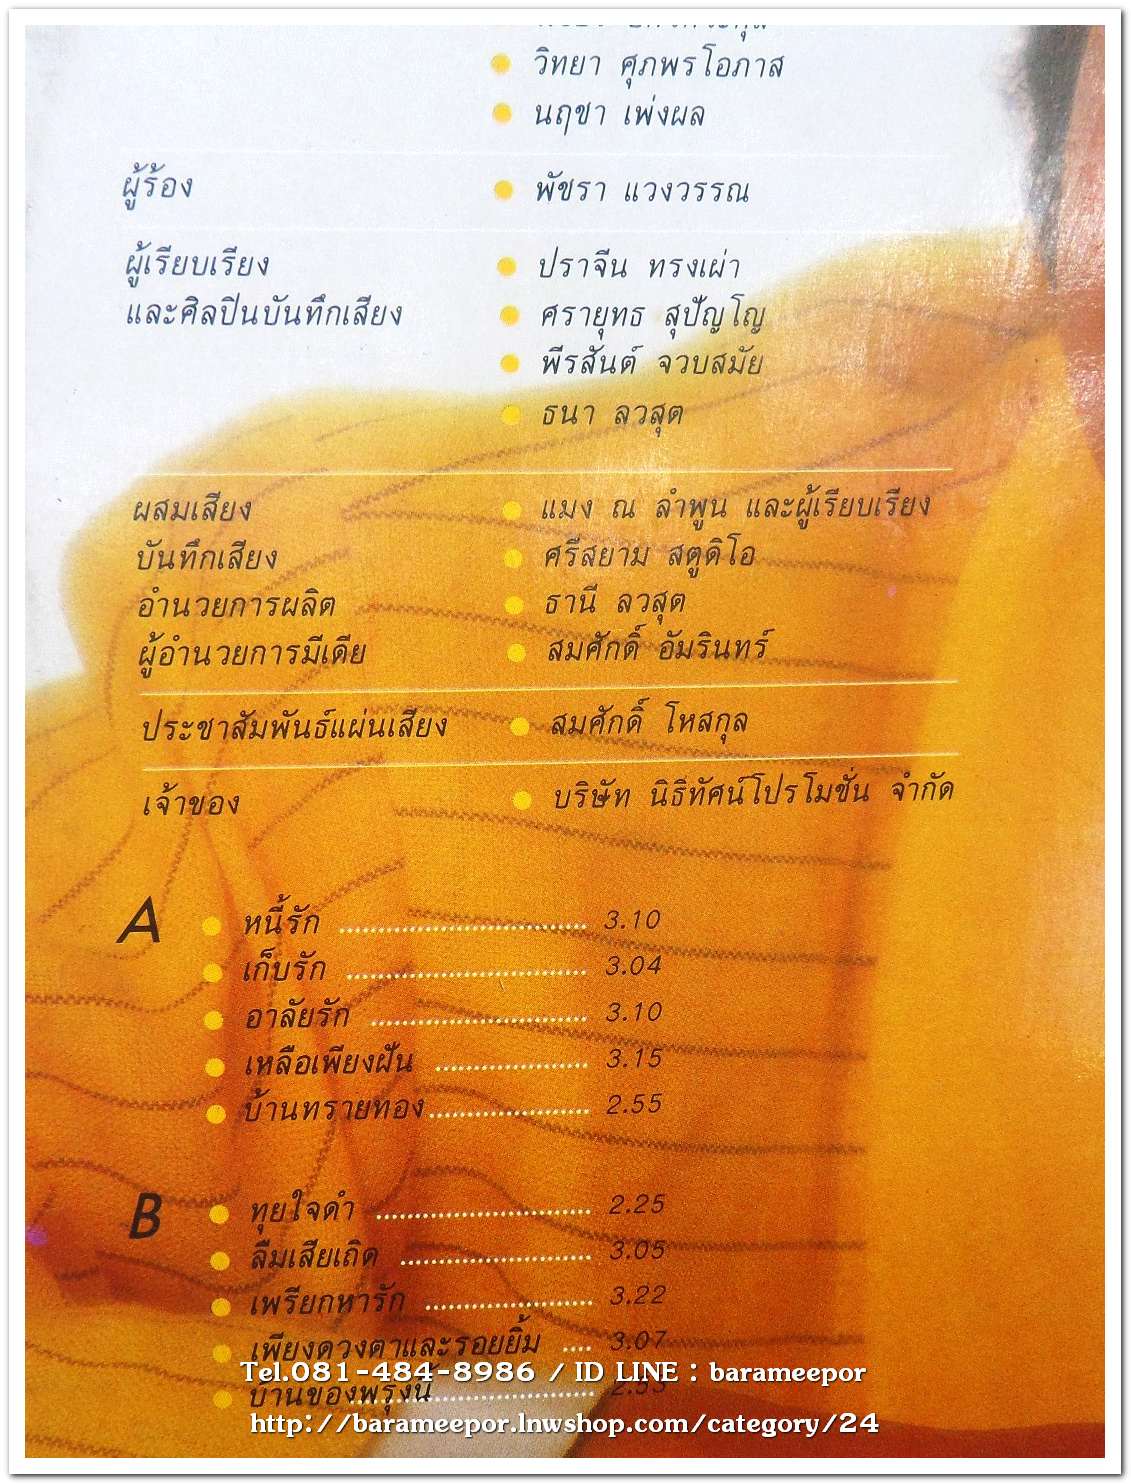 วิทยา ศุภพรโอภาส
นฤชา เพ่งผล
ผู้ร้อง พัชรา แวงวรรณ
ผู้เรียบเรียง ปราจีน ทรงเผ่า
และศิลปินบันทึกเสียง ศรายุทธ สุปัญโญ
พีรสันต์ จวบสมัย
ธนา ลวสุต
ผสมเสียง แมง ณ ลำพูน และผู้เรียบเรียง
บันทึกเสียง ศรีสยาม สตูดิโอ
อำนวยการผลิต ธานี ลวสุต
ผู้อำนวยการมีเดีย สมศักดิ์ อัมรินทร์
ประชาสัมพันธ์แผ่นเสียง สมศักดิ์ โหสกุล
เจ้าของ บริษัท นิธิทัศน์โปรโมชั่น จำกัด
A หนี้รัก 3.10
เก็บรัก 3.04
อาลัยรัก 3.10
เหลือเพียงฝัน 3.15
บ้านทรายทอง 2.55
B ทุยใจดำ 2.25
ลืมเสียเถิด 3.05
เพรียกหารัก 3.22
เพียงดวงตาและรอยยิ้ม 3.07
Tel.081-484-8986 / ID LINE : barameepor
บ้านของพรุ่งนี้
http://barameepor.lnwshop.com/category/24